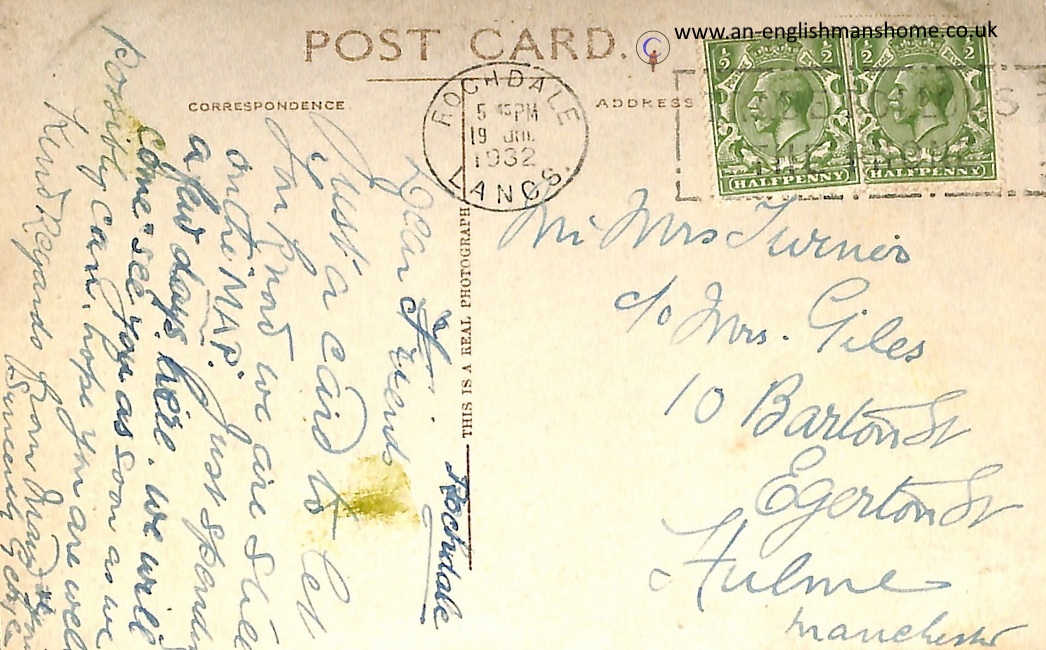 www.an-englishmanshome.co.uk
POST CARD.
CORRESPONDENCE
ADDRESS
ROCHDALE
5 45 PM
19 JUL
1932
LANCS.
½ ½
HALFPENNY
½ ½
HALFPENNY
THIS IS A REAL PHOTOGRAPH
Rochdale
Dear Friends
Just a card to let
you know we are still
on the MAP. Just spending
a few days here. we will
come & see you as soon as we
possibly can. hope you are well
Kind Regards from
Mr Mrs Turner
c/o Mrs. Giles
10 Barton St
Egerton St
Hulme
Manchester